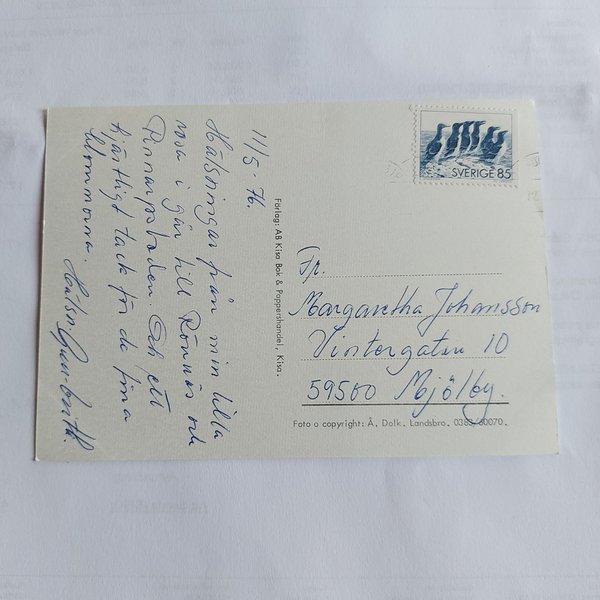 11/5-76.
Hälsningar från min lilla
resa i går till Rönnäs och
Pinnarpsboden. Och ett
hjärtligt tack för de fina
blommorna.
Hälsn.
SVERIGE 85
Fr.
Margaretha Johansson
Vintergatan 10
59500 Mjölby.
Förlag: AB Kisa Bok & Pappershandel, Kisa.
Foto o copyright: Å. Dolk. Landsbro. 0383/60070.